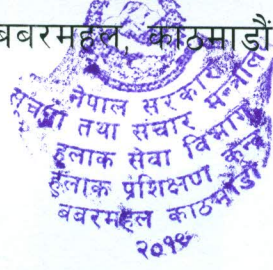 बबरमहल, काठमाडौं
नेपाल सरकार
सूचना तथा संचार मन्त्रालय
हुलाक सेवा विभाग
हुलाक प्रशिक्षण केन्द्र
बबरमहल काठमाडौं